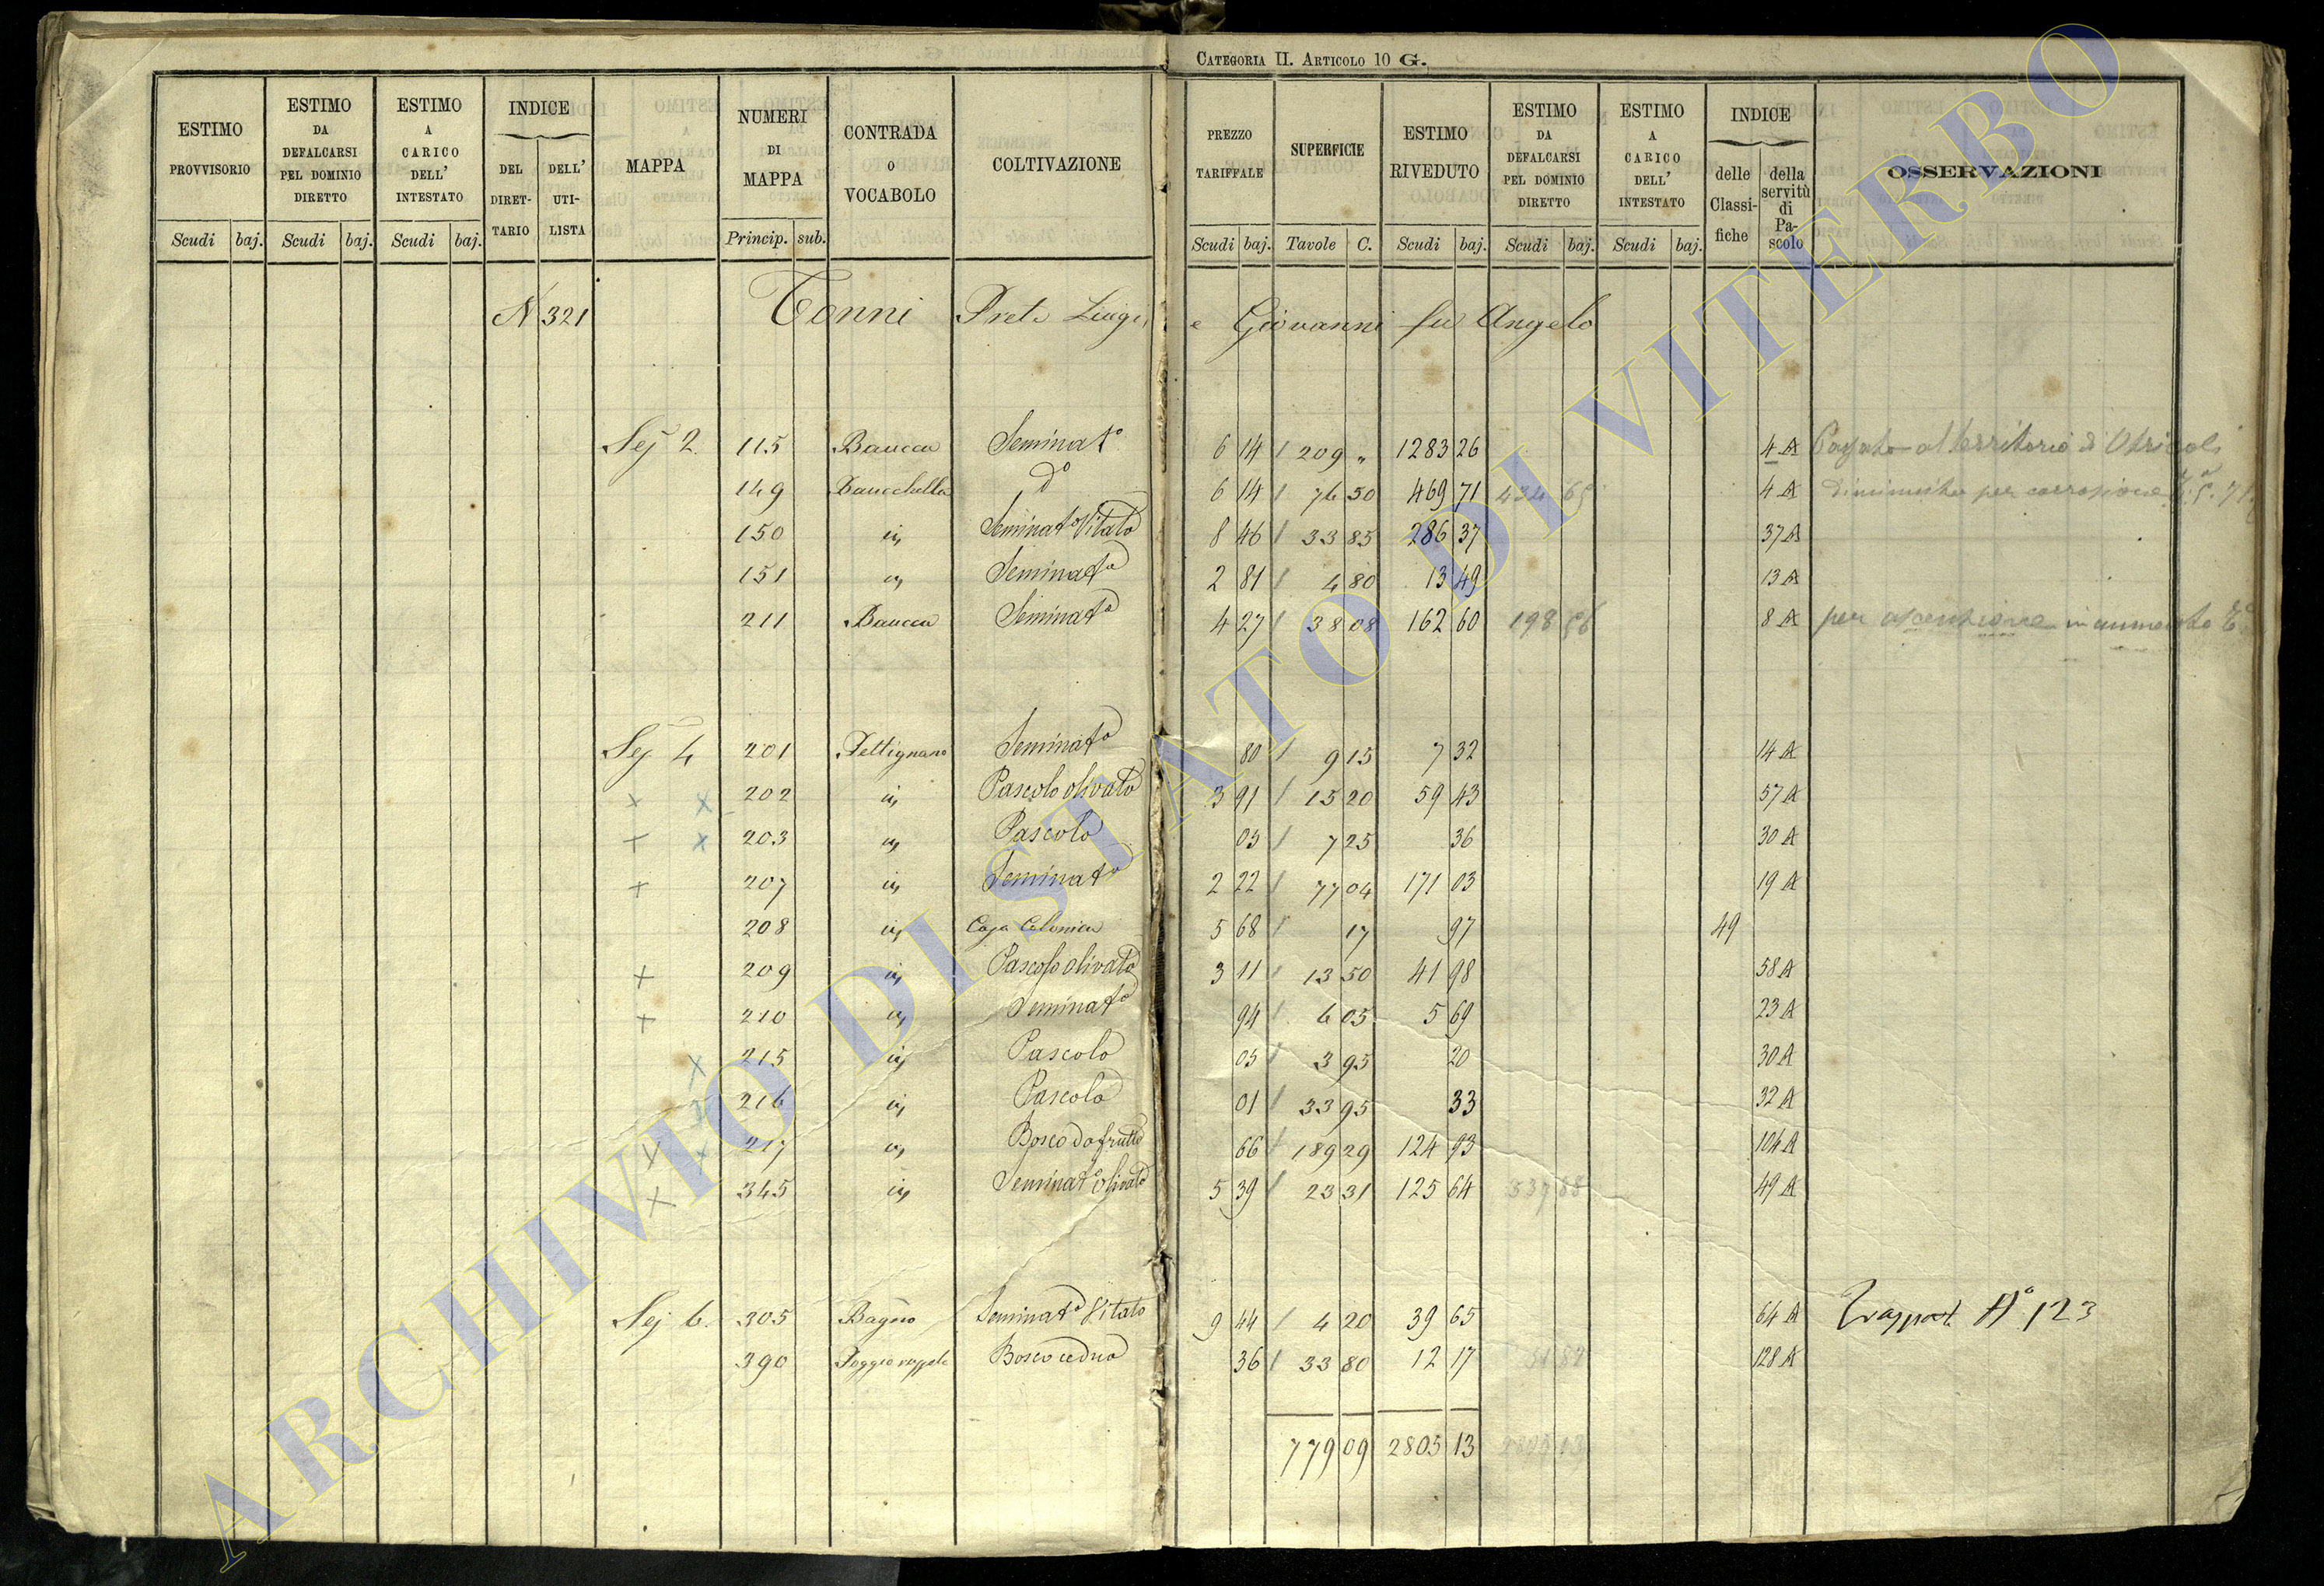 CATEGORIA II. ARTICOLO 10 G.
ESTIMO PROVVISORIO | ESTIMO DA DEFALCARSI PEL DOMINIO DIRETTO | ESTIMO A CARICO DELL' INTESTATO | INDICE DEL DIRET-TARIO | DELL' UTI-LISTA | MAPPA | NUMERI DI MAPPA | CONTRADA O VOCABOLO | COLTIVAZIONE | PREZZO TARIFFALE | SUPERFICIE | ESTIMO RIVEDUTO | ESTIMO DA DEFALCARSI PEL DOMINIO DIRETTO | ESTIMO A CARICO DELL' INTESTATO | INDICE delle Classi-fiche | della servitù di Pa-scolo | OSSERVAZIONI
Scudi baj. Scudi baj. Scudi baj. Princip. sub. Scudi baj. Tavole C. Scudi baj. Scudi baj. Scudi baj.
N 321 Tonni Prete Luigi, e Giovanni fu Angelo
Sej 2. 115 Baucca Seminato 6 14 209 " 1283 26 4 A Passato al territorio di Otricoli
149 Baucchella Do 6 14 76 50 469 71 434 65 4 A diminuito per corrosione
150 in Seminato Vitato 8 46 33 85 286 37 37 A
151 in Seminato 2 81 4 80 13 49 13 A
211 Baucca Seminato 4 27 38 08 162 60 198 56 8 A per in aumento
Sej 4 201 Pettignano Seminato 80 9 15 7 32 14 A
202 in Pascolo olivato 3 91 15 20 59 43 57 A
203 in Pascolo 05 7 25 36 30 A
207 in Seminato 2 22 77 04 171 03 19 A
208 in Casa Colonica 5 68 17 97 49
209 in Pascolo olivato 3 11 13 50 41 98 58 A
210 in Seminato 94 6 05 5 69 23 A
215 in Pascolo 05 3 95 20 30 A
216 in Pascolo 01 33 95 33 32 A
217 in Bosco da frutto 66 189 29 124 93 104 A
345 in Seminato Olivato 5 39 23 31 125 64 537 88 49 A
Sej 6. 305 Bagno Seminato Vitato 9 44 4 20 39 65 64 A Trasport. Ao 123
390 Poggio Bosco ceduo 36 33 80 12 17 51 82 128 A
779 09 2805 13 2805 13
ARCHIVIO DI STATO DI VITERBO